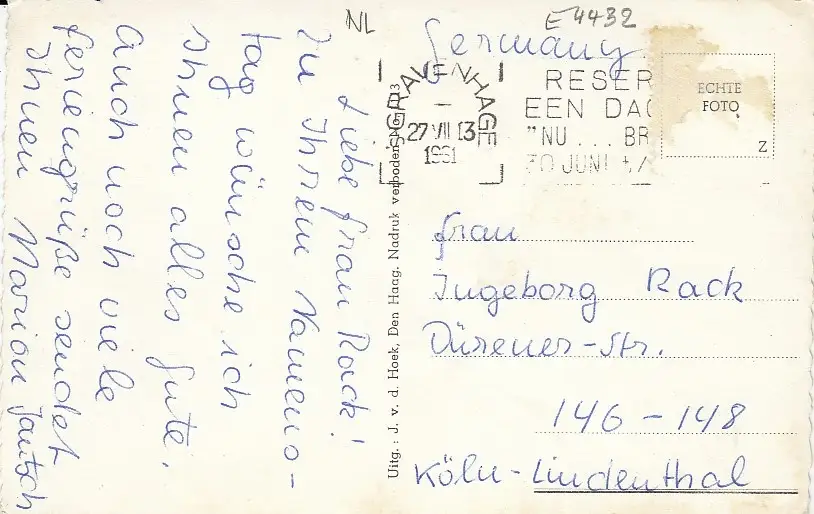 NL
E 4432
Germany
'S GRAVENHAGE
27 VII 13
1961
RESER
EEN DAG
"NU ... BR
30 JUNI t/
ECHTE
FOTO
Z
Liebe Frau Rack!
Zu Ihrem Namens-
tag wünsche ich
Ihnen alles Gute.
Auch noch viele
Feriengrüße sendet
Ihnen Marion Jantsch
Uitg.: J. v. d. Hoek, Den Haag. Nadruk verboden
Frau
Ingeborg Rack
Dürener-Str.
146 - 148
Köln-Lindenthal